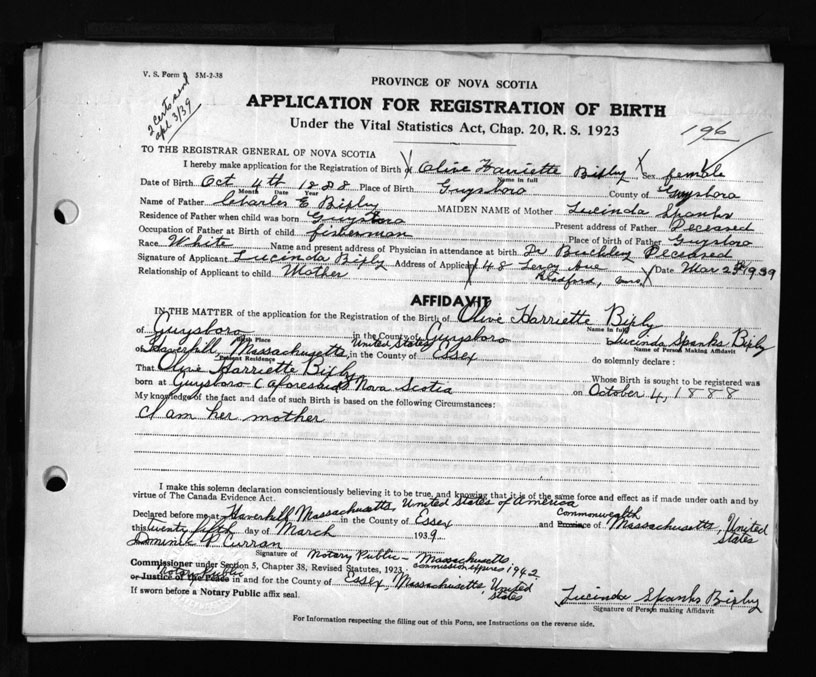 V. S. Form 5M-2-38
2 Certs send
apl 3/39
PROVINCE OF NOVA SCOTIA
APPLICATION FOR REGISTRATION OF BIRTH
Under the Vital Statistics Act, Chap. 20, R. S. 1923
196
TO THE REGISTRAR GENERAL OF NOVA SCOTIA
I hereby make application for the Registration of Birth of Olive Harriette Bixby Sex female
Name in full
Date of Birth Oct 4th 1888 Place of Birth Guysboro County of Guysboro
Month Date Year
Name of Father Charles E Bixby MAIDEN NAME of Mother Lucinda Spanks
Residence of Father when child was born Guysboro Present address of Father Deceased
Occupation of Father at Birth of child fisherman Place of birth of Father Guysboro
Race White Name and present address of Physician in attendance at birth Dr Buckley Deceased
Signature of Applicant Lucinda Bixby Address of Applicant 48 Leroy Ave Date Mar 25 1939
Relationship of Applicant to child Mother
AFFIDAVIT
IN THE MATTER of the application for the Registration of the Birth of Olive Harriette Bixby
Name in full
of Guysboro in the County of Guysboro Lucinda Spanks Bixby
Birth Place United States Name of Person Making Affidavit
of Haverhill, Massachusetts, in the County of Essex do solemnly declare :
Present Residence
That Olive Harriette Bixby Whose Birth is sought to be registered was
born at Guysboro (aforesaid) Nova Scotia on October 4, 1888
My knowledge of the fact and date of such Birth is based on the following Circumstances:
I am her mother
I make this solemn declaration conscientiously believing it to be true, and knowing that it is of the same force and effect as if made under oath and by
virtue of The Canada Evidence Act.
United States of America
Declared before me at Haverhill Massachusetts, in the County of Essex and Province of Commonwealth Massachusetts, United States
this Twenty fifth day of March 1939
Dominic P Curran
Signature of Notary Public - Massachusetts
commission expires 1942
Commissioner under Section 5, Chapter 38, Revised Statutes, 1923,
Notary Public
or Justice of the Peace in and for the County of Essex Massachusetts, United States
If sworn before a Notary Public affix seal.
Lucinda Spanks Bixby
Signature of Person making Affidavit
For Information respecting the filling out of this Form, see Instructions on the reverse side.